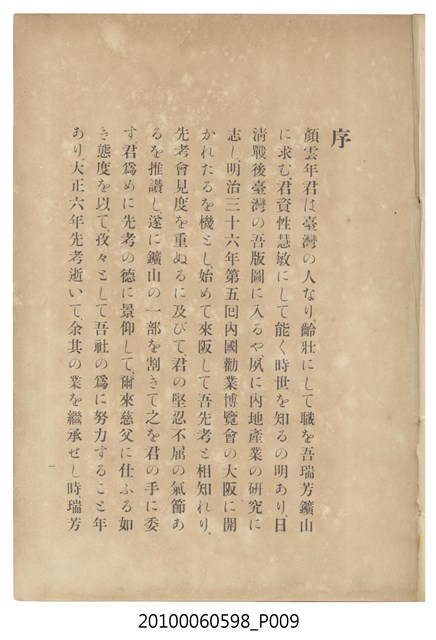 序
顏雲年君は臺灣の人なり、齡壯にして職を吾瑞芳鑛山
に求む、君資性慧敏にして能く時世を知るの明あり、日
淸戰後臺灣の吾版圖に入るや、夙に內地產業の硏究に
志し、明治三十六年第五回內國勸業博覽會の大阪に開
かれたるを機とし、始めて來阪して吾先考と相知れり、
先考會見度を重ぬるに及びて、君の堅忍不屈の氣節あ
るを推讃し、遂に鑛山の一部を割きて之を君の手に委
す、君爲めに先考の德に景仰して、爾來慈父に仕ふる如
き態度を以て、孜々として吾社の爲に努力すること年
あり、大正六年先考逝いて、余其の業を繼承せし時瑞芳
20100060598_P009